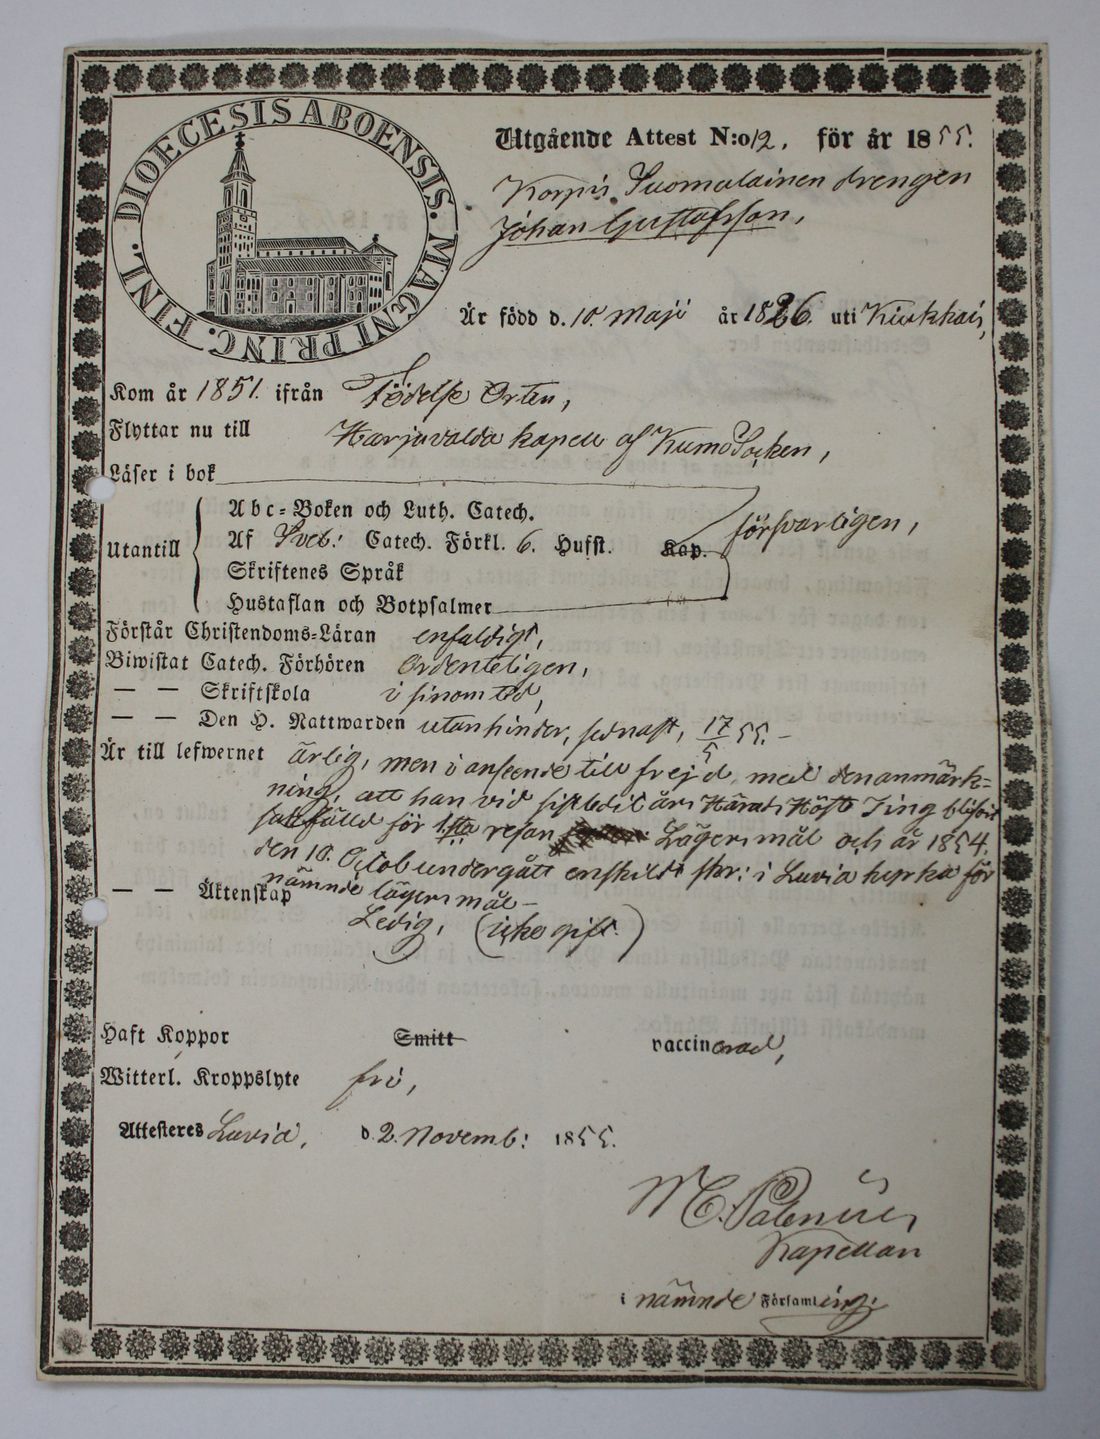 DIOECESIS ABOENSIS. MAGNI PRINC. FINL.
Utgående Attest N:o 12. för år 1855.
Korpis. Suomalainen drengen
Johan Gustafsson,
Är född d. 10. Maji år 1826. uti Kiukkais,
Kom år 1851. ifrån Födelse Orten,
Flyttar nu till Harjavalda kapell af Kumo Socken,
Läser i bok
försvarligen,
Utantill
Abc-Boken och Luth. Catech.
Af Sveb: Catech. Förkl. 6. Hufst. Kap.
Skriftenes Språk
Hustaflan och Botpsalmer
Förstår Christendoms-Läran enfaldigt,
Biwistat Catech. Förhören Ordenteligen,
— — Skriftskola i sinom tid,
— — Den H. Nattwarden utan hinder, sednast, 17/5 55. –
Är till lefwernet ärlig, men i anseende till frejd, med den anmärk=
ning, att han vid sistledit års Härads Höste Ting blifvit
sakfälld för 1sta resan Lägersmål och år 1854.
den 10. Octob undergått enskildt skr: i Luvia kyrka för
nämnde lägersmål –
— — Äktenskap
Ledig, (icke gift)
Haft Koppor Smitt vaccinerad,
Witterl. Kroppslyte fri,
Attesteres Luvia, d. 2. Novemb: 1855.
M C. Palenius
Kapellan
i nämnde Församling: